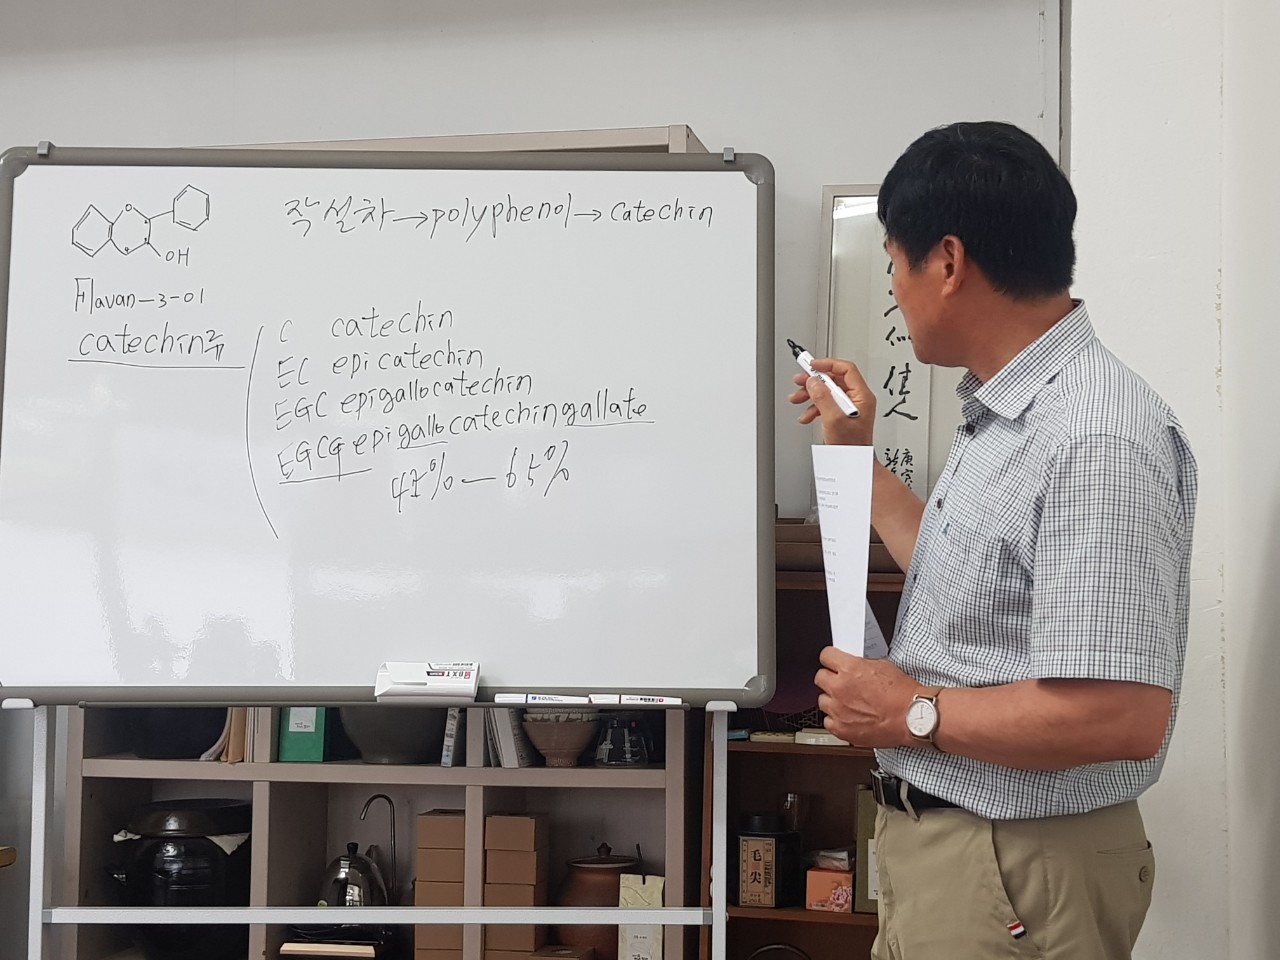 작설차→polyphenol→catechin
OH
Flavan-3-ol
catechin류
C catechin
EC epicatechin
EGC epigallocatechin
EGCG epigallocatechingallate
47%-65%
佳
人
庚
毛
尖